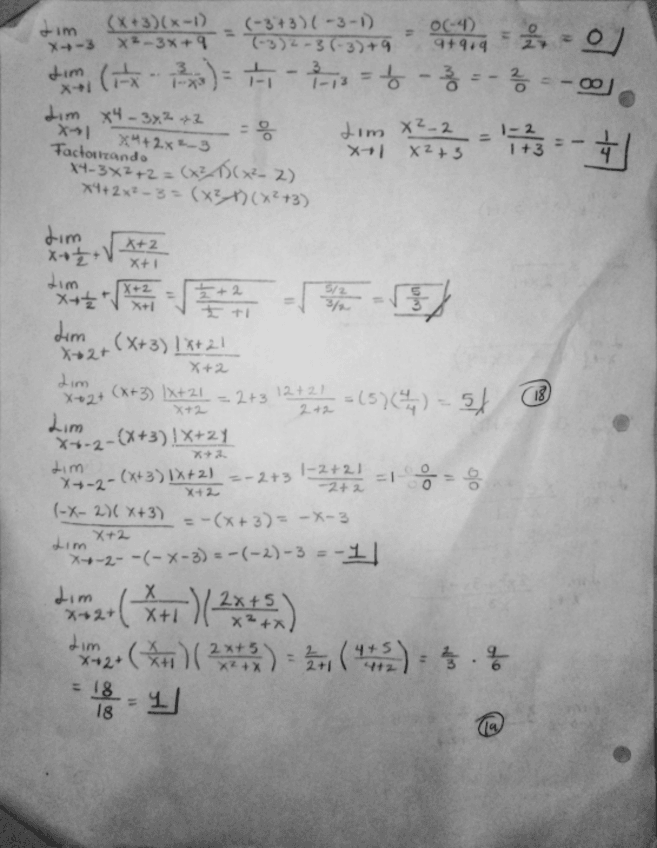 Lim x→-3 (x+3)(x-1) / x²-3x+9 = (-3+3)(-3-1) / (-3)²-3(-3)+9 = 0(-4) / 9+9+9 = 0/27 = 0
Lim x→1 (1/1-x - 3/1-x³) = 1/1-1 - 3/1-1³ = 1/0 - 3/0 = -2/0 = -∞
Lim x→1 x⁴-3x²+2 / x⁴+2x²-3 = 0/0
Lim x→1 x²-2 / x²+3 = 1-2 / 1+3 = -1/4
Factorizando
x⁴-3x²+2 = (x²-1)(x²-2)
x⁴+2x²-3 = (x²-1)(x²+3)
Lim x→1/2+ √(x+2 / x+1)
Lim x→1/2+ √(x+2 / x+1) = √(1/2+2 / 1/2+1) = √(5/2 / 3/2) = √(5/3)
Lim x→2+ (x+3) |x+2| / x+2
Lim x→2+ (x+3) |x+2| / x+2 = 2+3 |2+2| / 2+2 = (5)(4/4) = 5
18
Lim x→-2- (x+3) |x+2| / x+2
Lim x→-2- (x+3) |x+2| / x+2 = -2+3 |-2+2| / -2+2 = 1 · 0/0 = 0/0
(-x-2)(x+3) / x+2 = -(x+3) = -x-3
Lim x→-2- -(-x-3) = -(-2)-3 = -1
Lim x→2+ (x / x+1)(2x+5 / x²+x)
Lim x→2+ (x / x+1)(2x+5 / x²+x) = 2 / 2+1 (4+5 / 4+2) = 2/3 · 9/6
= 18/18 = 1
19